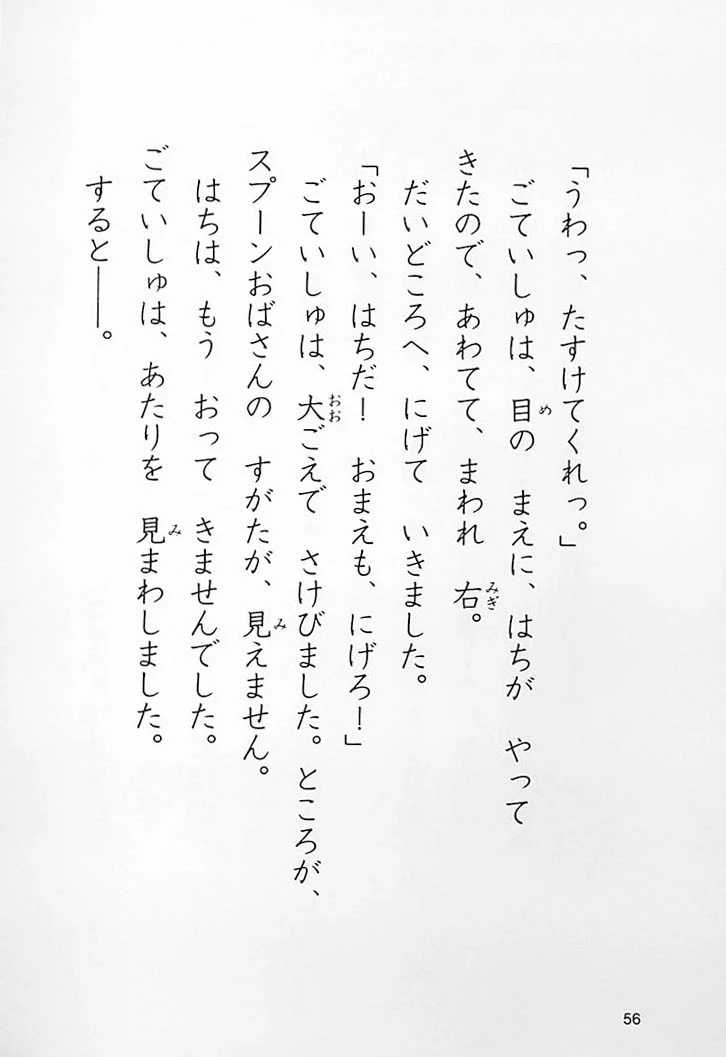 「うわっ、たすけてくれっ。」
ごていしゅは、目の　まえに、はちが　やって
きたので、あわてて、まわれ　右。
だいどころへ、にげて　いきました。
「おーい、はちだ！　おまえも、にげろ！」
ごていしゅは、大ごえで　さけびました。ところが、
スプーンおばさんの　すがたが、見えません。
はちは、もう　おって　きませんでした。
ごていしゅは、あたりを　見まわしました。
すると――。
56